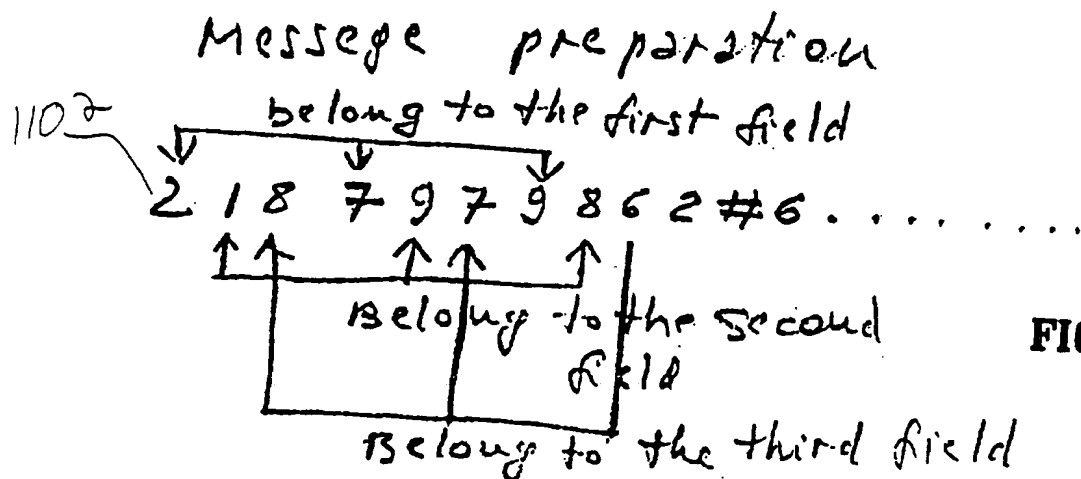 Messege preparation
1102 belong to the first field
2 1 8 7 9 7 9 8 6 2 # 6 . . . . . . . . .
Belong to the second
field
FIG
Belong to the third field